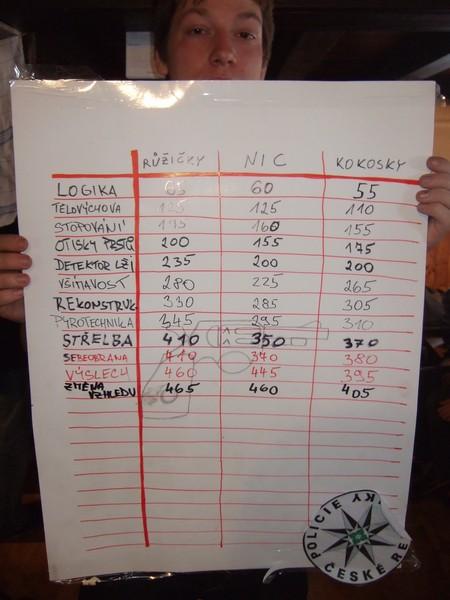 RŮŽIČKY NIC KOKOSKY
LOGIKA 65 60 55
TĚLOVÝCHOVA 125 125 110
STOPOVÁNÍ 195 160 155
OTISKY PRSTŮ 200 155 175
DETEKTOR LŽI 235 200 200
VŠÍMAVOST 280 225 265
REKONSTRUK 330 285 305
PYROTECHNIKA 345 295 310
STŘELBA 410 350 370
SEBEOBRANA 410 370 380
VÝSLECH 460 445 395
ZMĚNA VZHLEDU 465 460 405
POLICIE
ČESKÉ RE KY